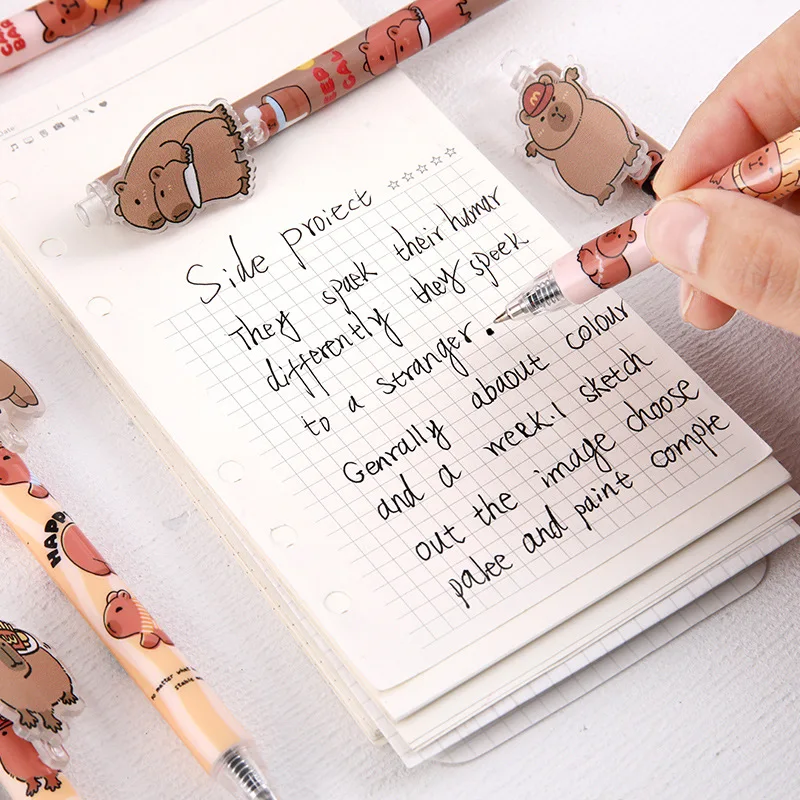 Date:
Side proiect
They spaek their humar
differently they speek
to a stranger.
Genrally abaout colour
and a week.I sketch
out the image choose
palee and paint comple
HAPP